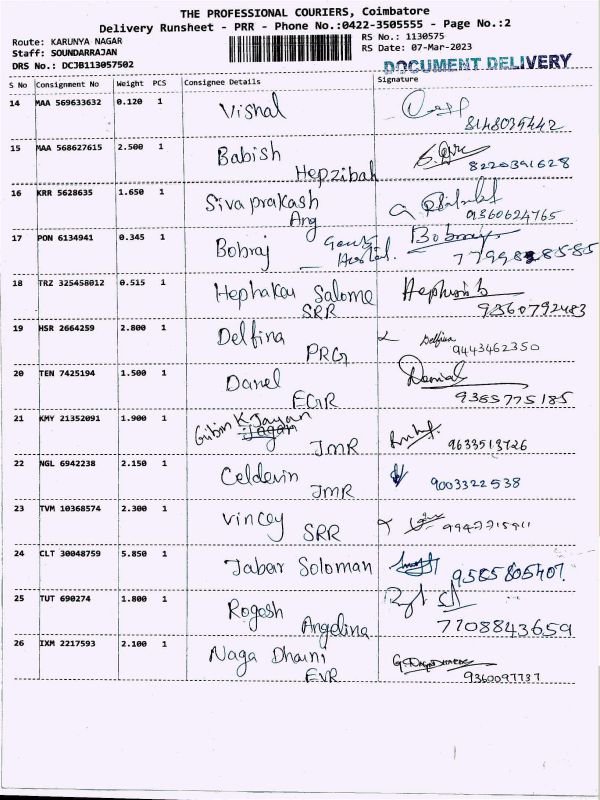 THE PROFESSIONAL COURIERS, Coimbatore
Delivery Runsheet - PRR - Phone No.:0422-3505555 - Page No.:2
Route: KARUNYA NAGAR RS No.: 1130575
Staff: SOUNDARRAJAN RS Date: 07-Mar-2023
DRS No.: DCJB113057502 DOCUMENT DELIVERY
S No Consignment No Weight PCS Consignee Details Signature
14 MAA 569633632 0.120 1 Vishal
8148035442
15 MAA 568627615 2.500 1 Babish
Hepzibah 8220391628
16 KRR 5628635 1.650 1 Sivaprakash
Ang 9360624765
17 PON 6134941 0.345 1 Bobraj Gents Hostel. Bobraj
18 TRZ 325458012 0.515 1 Hephakeu Salome
SRR 9360792483
19 HSR 2664259 2.800 1 Delfina Delfina
PRG 9443462350
20 TEN 7425194 1.500 1 Danel Danial
EGR 9385775185
21 KMY 21352091 1.900 1 Gibin K Jayan
JMR 9633513726
22 NGL 6942238 2.150 1 Celdevin
JMR 9003322538
23 TVM 10368574 2.300 1 Vincey
SRR
24 CLT 30048759 5.850 1 Jabar Soloman
9585805407.
25 TUT 690274 1.800 1 Rogesh
Angelina 7708843659
26 IXM 2217593 2.100 1 Naga Dharni
EVR 9360097737